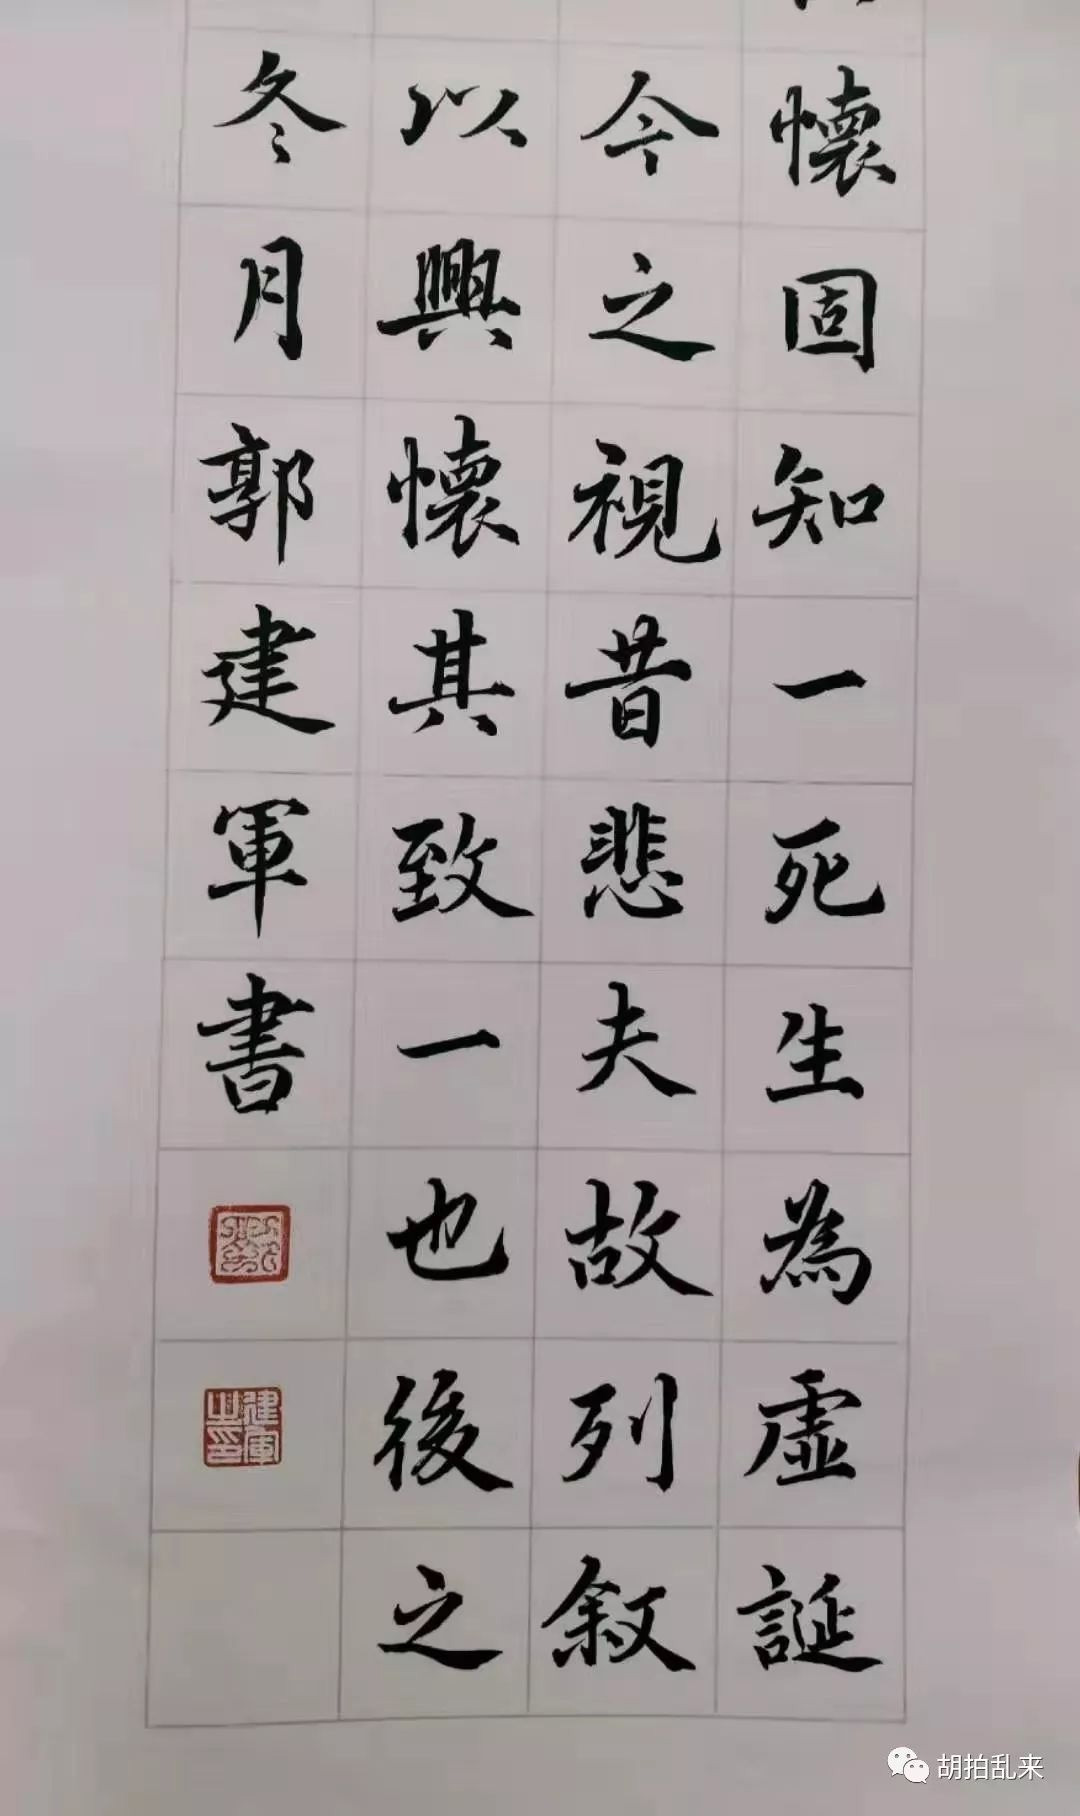 懷固知一死生為虛誕
今之視昔悲夫故列叙
以興懷其致一也後之
冬月郭建軍書
建軍之印
胡拍乱来